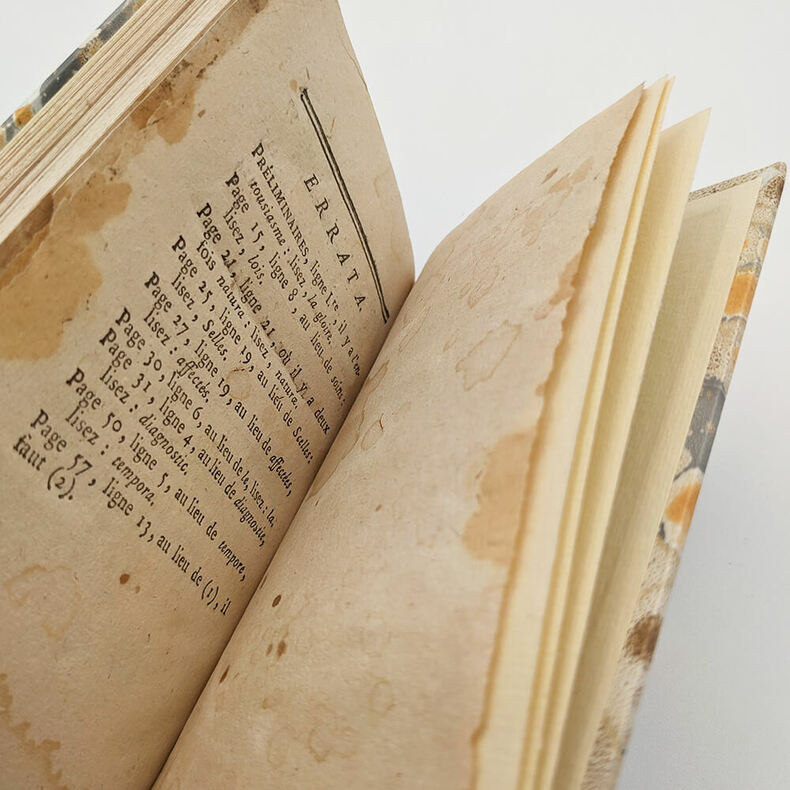 ERRATA.
PRÉLIMINAIRES, ligne 1.re, il y a l'en-
tousiasme : lisez, la gloire.
Page 15, ligne 8, au lieu de soins :
lisez, lois.
Page 21, ligne 21, où il y a deux
fois natura : lisez, naturæ.
Page 25, ligne 19, au lieu de Scelles :
lisez, Selles.
Page 27, ligne 19, au lieu de affectées,
lisez : affectés.
Page 30, ligne 6, au lieu de le, lisez : la.
Page 31, ligne 4, au lieu de diagnostie,
lisez : diagnostic.
Page 50, ligne 5, au lieu de tempore,
lisez : tempora.
Page 57, ligne 13, au lieu de (1), il
faut (2).